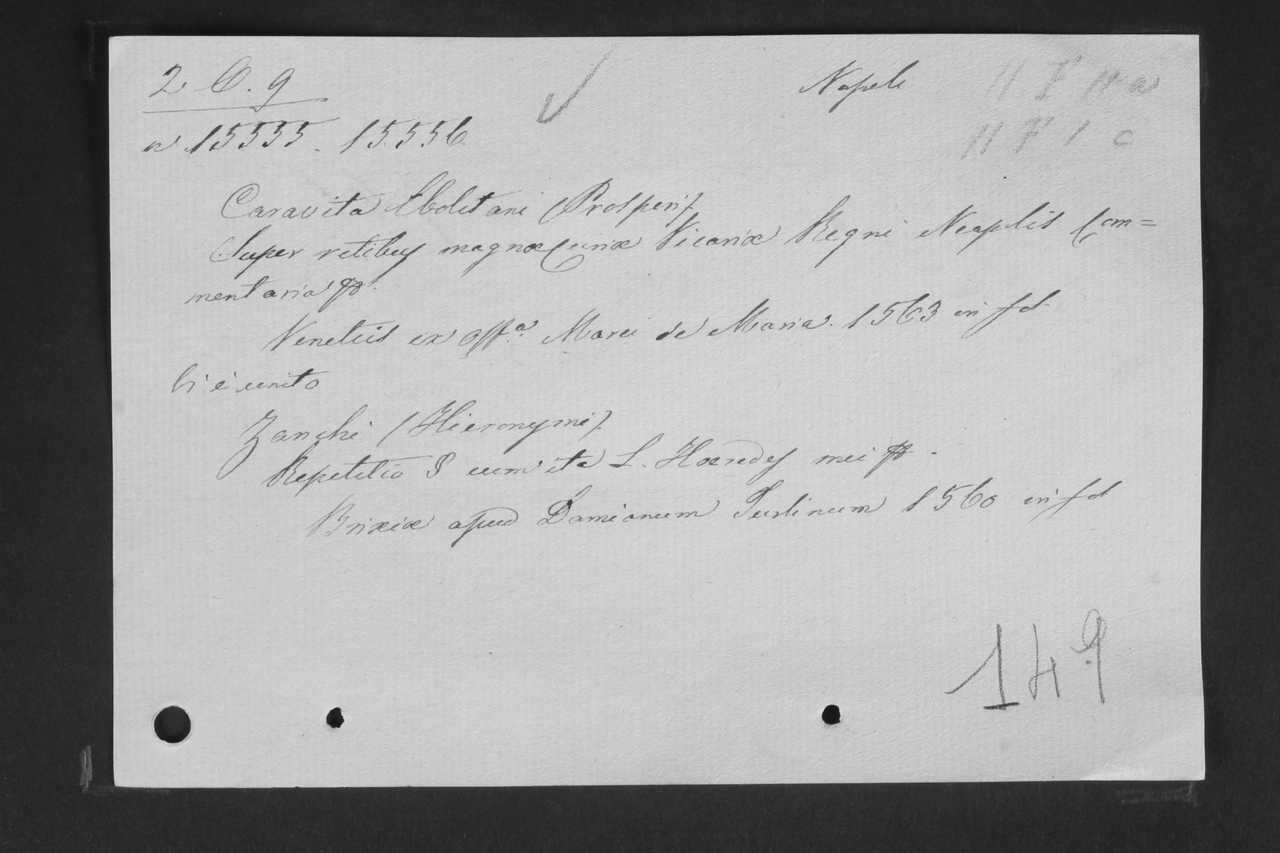 2 C. 9
Napoli
n 15555. 15.556
Caravita Ebolitani (Prosperi)
Super ritibus magnæ Curiæ Vicariæ Regni Neaplis Com=
mentaria
Venetiis ex off.a Marci de Maria. 1563 in fol
Vi è unito
Zanchi (Hieronymi)
Repetitio § cum ita L. Hæredes mei
Brixiæ apud Damianum Turlinum 1560 in fol
149